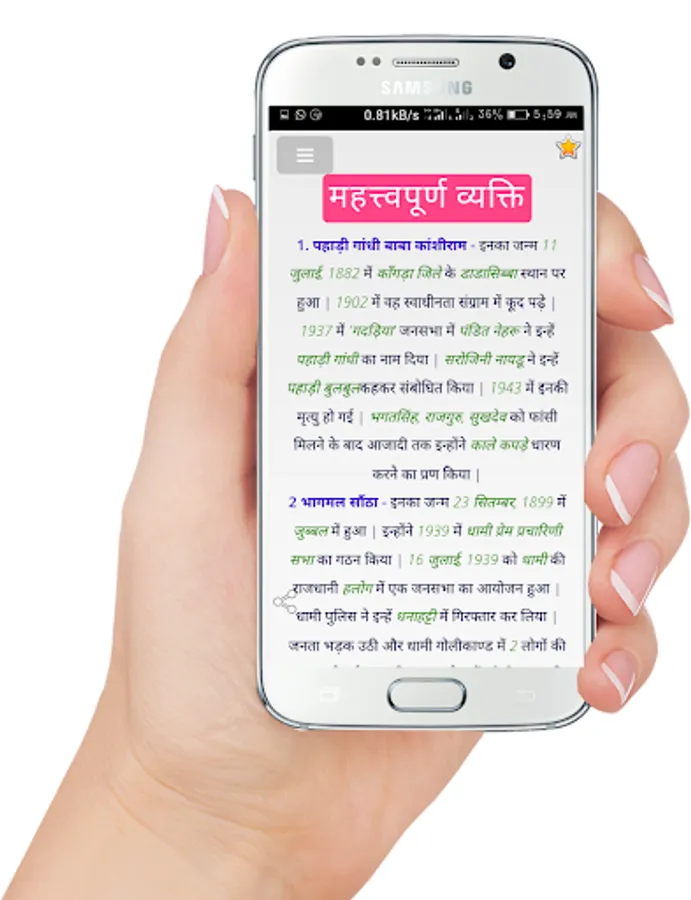 SAMSUNG
0.81kB/s 36% 5:59 AM
महत्त्वपूर्ण व्यक्ति
1. पहाड़ी गांधी बाबा कांशीराम - इनका जन्म 11
जुलाई, 1882 में काँगड़ा जिले के डाडासिब्बा स्थान पर
हुआ | 1902 में वह स्वाधीनता संग्राम में कूद पड़े |
1937 में 'गदड़िया' जनसभा में पंडित नेहरू ने इन्हें
पहाड़ी गांधी का नाम दिया | सरोजिनी नायडू ने इन्हें
पहाड़ी बुलबुलकहकर संबोधित किया | 1943 में इनकी
मृत्यु हो गई | भगतसिंह, राजगुरु, सुखदेव को फांसी
मिलने के बाद आजादी तक इन्होंने काले कपड़े धारण
करने का प्रण किया |
2 भागमल सौंठा - इनका जन्म 23 सितम्बर, 1899 में
जुब्बल में हुआ | इन्होंने 1939 में धामी प्रेम प्रचारिणी
सभा का गठन किया | 16 जुलाई, 1939 को धामी की
राजधानी हलोग में एक जनसभा का आयोजन हुआ |
धामी पुलिस ने इन्हें धनाहट्टी में गिरफ्तार कर लिया |
जनता भड़क उठी और धामी गोलीकाण्ड में 2 लोगों की